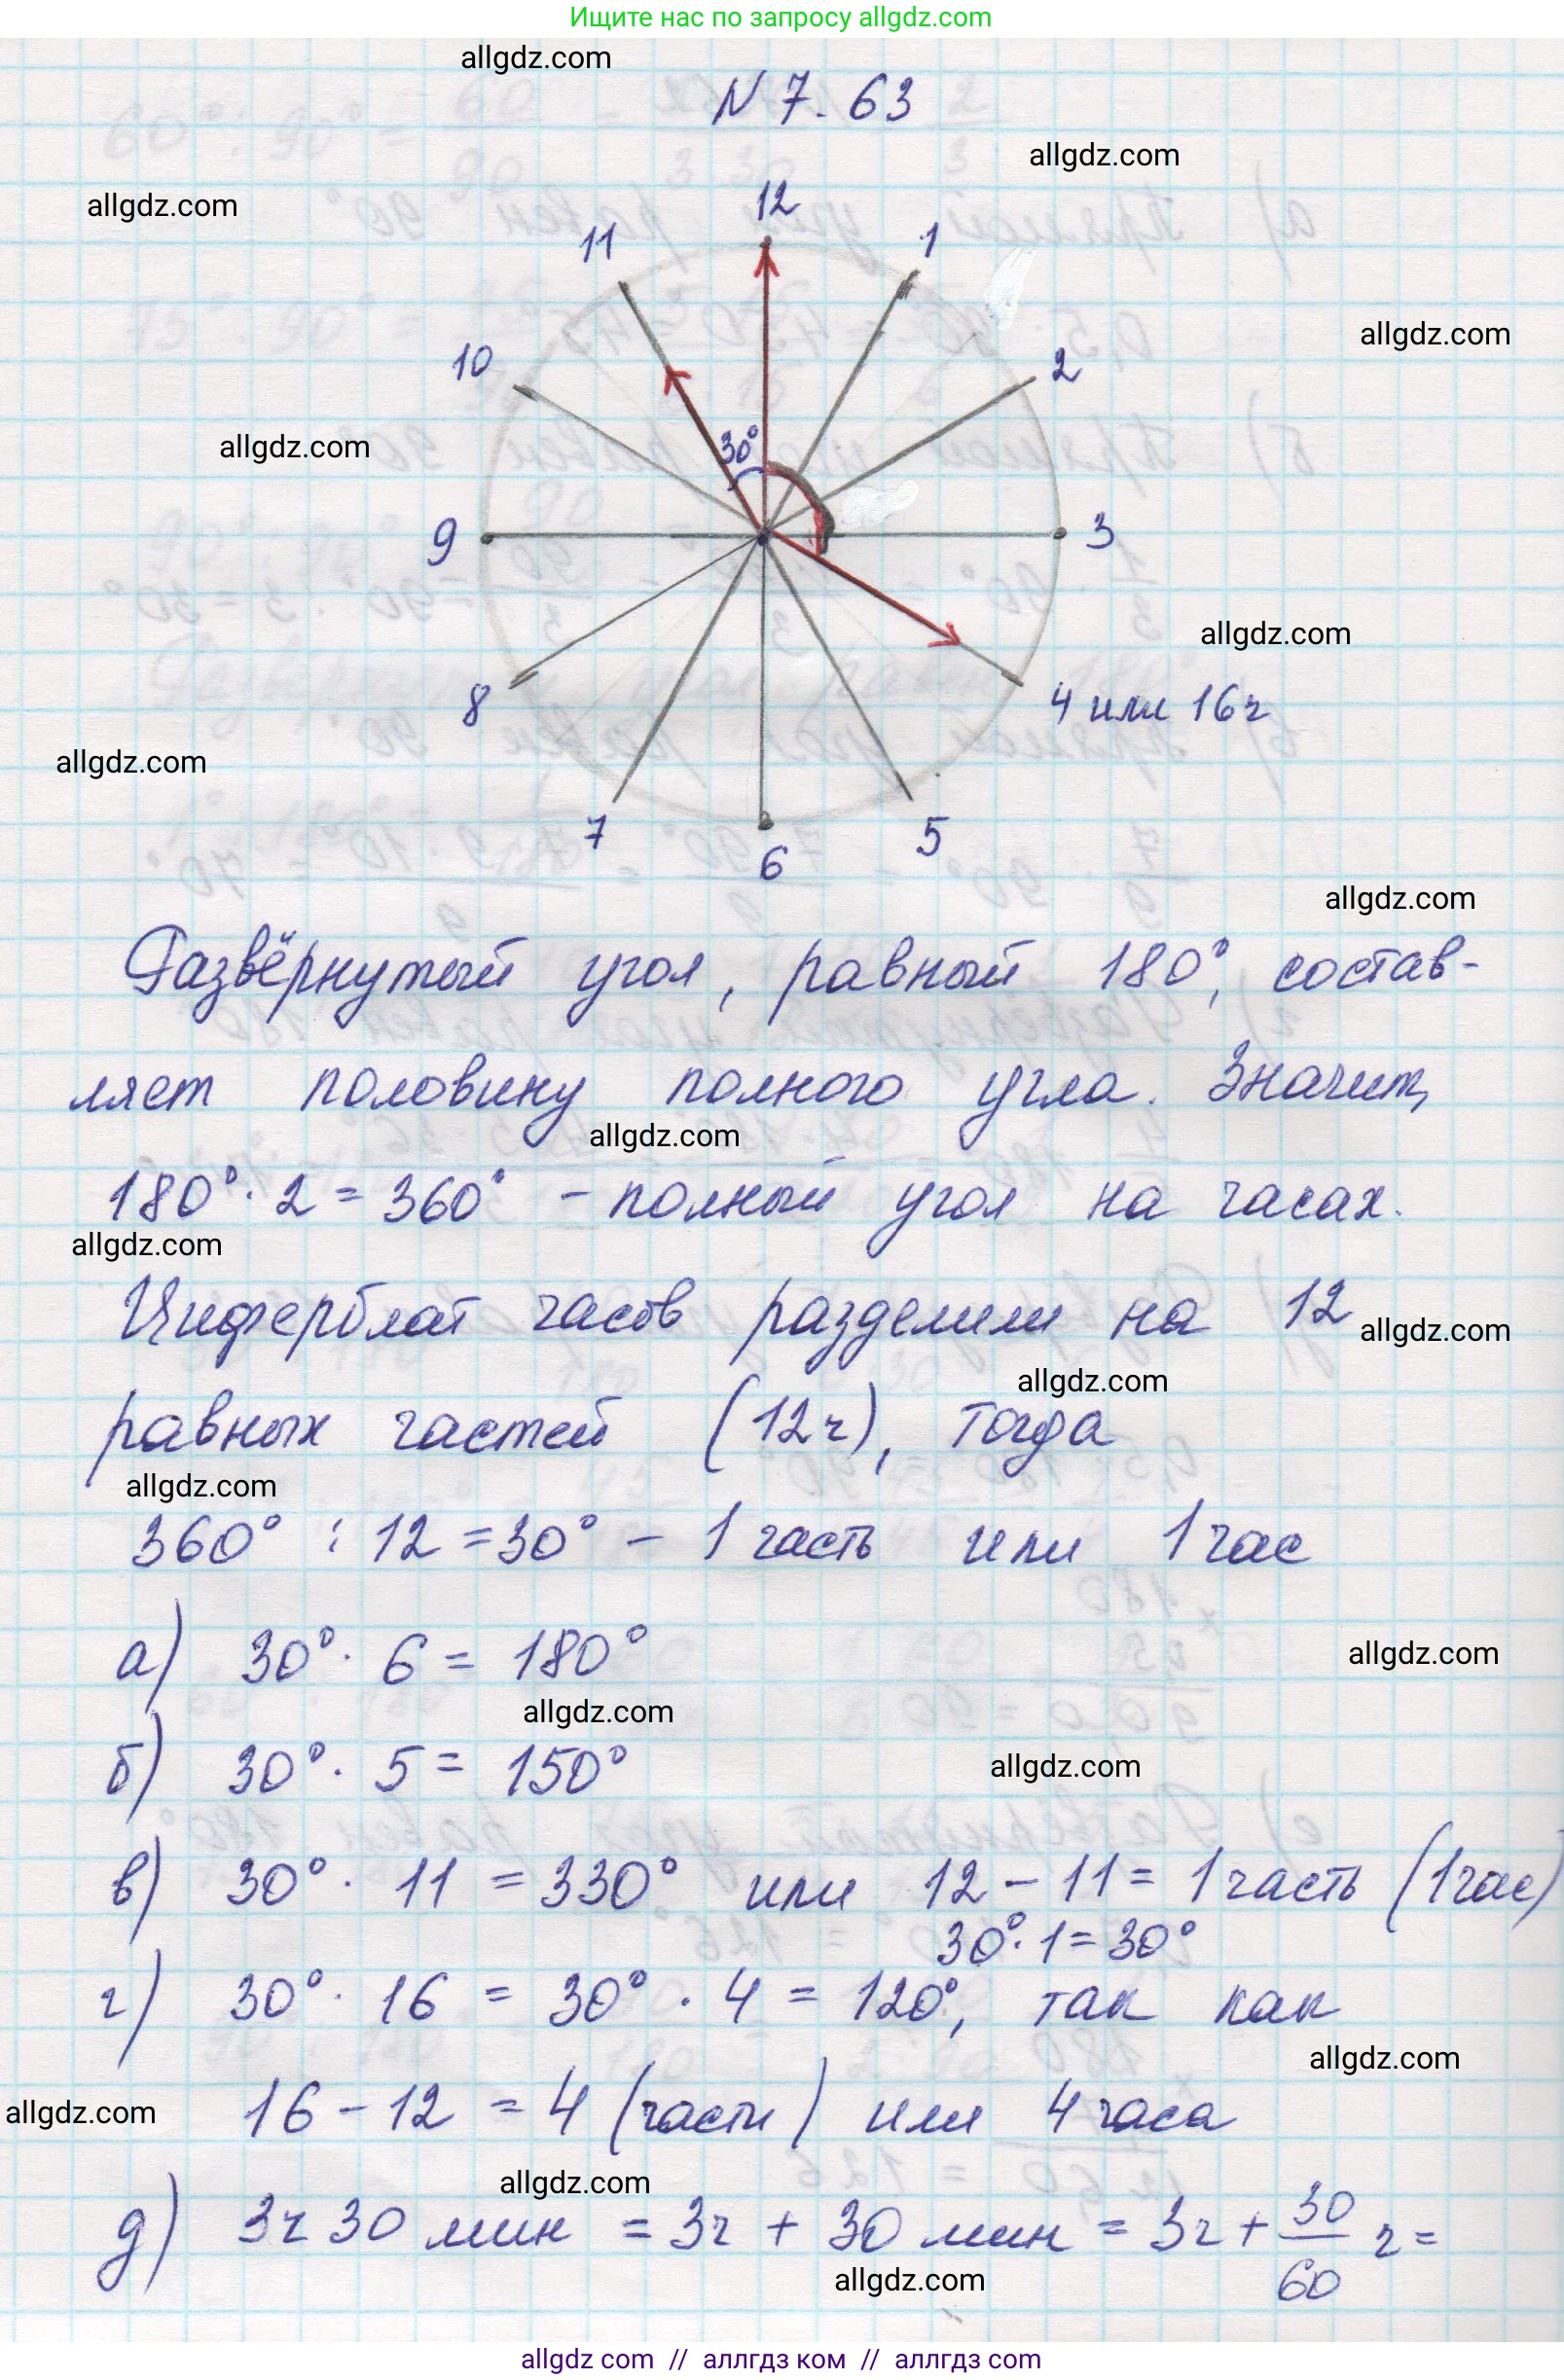 Ищите нас по запросу allgdz.com
allgdz.com
N 7.63
allgdz.com
allgdz.com
12
11
1
allgdz.com
10
2
30°
allgdz.com
9
3
allgdz.com
8
4 или 16ч
allgdz.com
7
5
6
allgdz.com
Развёрнутый угол, равный 180°, состав-
ляет половину полного угла. Значит,
allgdz.com
180° · 2 = 360° - полный угол на часах.
allgdz.com
Циферблат часов разделили на 12
allgdz.com
allgdz.com
равных частей (12ч), тогда
allgdz.com
360° : 12 = 30° - 1 часть или 1 час
а) 30° · 6 = 180°
allgdz.com
allgdz.com
б) 30° · 5 = 150°
allgdz.com
в) 30° · 11 = 330° или 12 - 11 = 1 часть (1час)
30° · 1 = 30°
г) 30° · 16 = 30° · 4 = 120°, так как
allgdz.com
16 - 12 = 4 (части) или 4 часа
allgdz.com
allgdz.com
д) 3ч 30 мин = 3ч + 30 мин = 3ч + 30/60 ч =
allgdz.com
allgdz com // аллгдз ком // аллгдз com